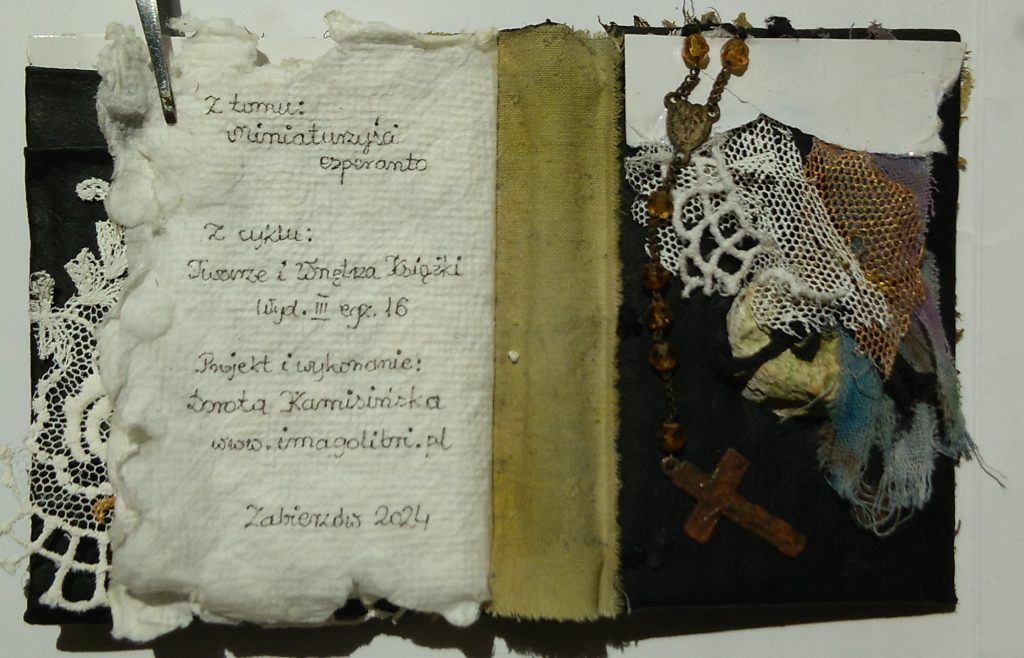 Z tomu:
Miniaturzyści
esperanto
Z cyklu:
Twarze i Wnętrza Książki
Wyd. III egz. 16
Projekt i wykonanie:
Dorota Kamisińska
www.imagolibri.pl
Zabierzów 2024